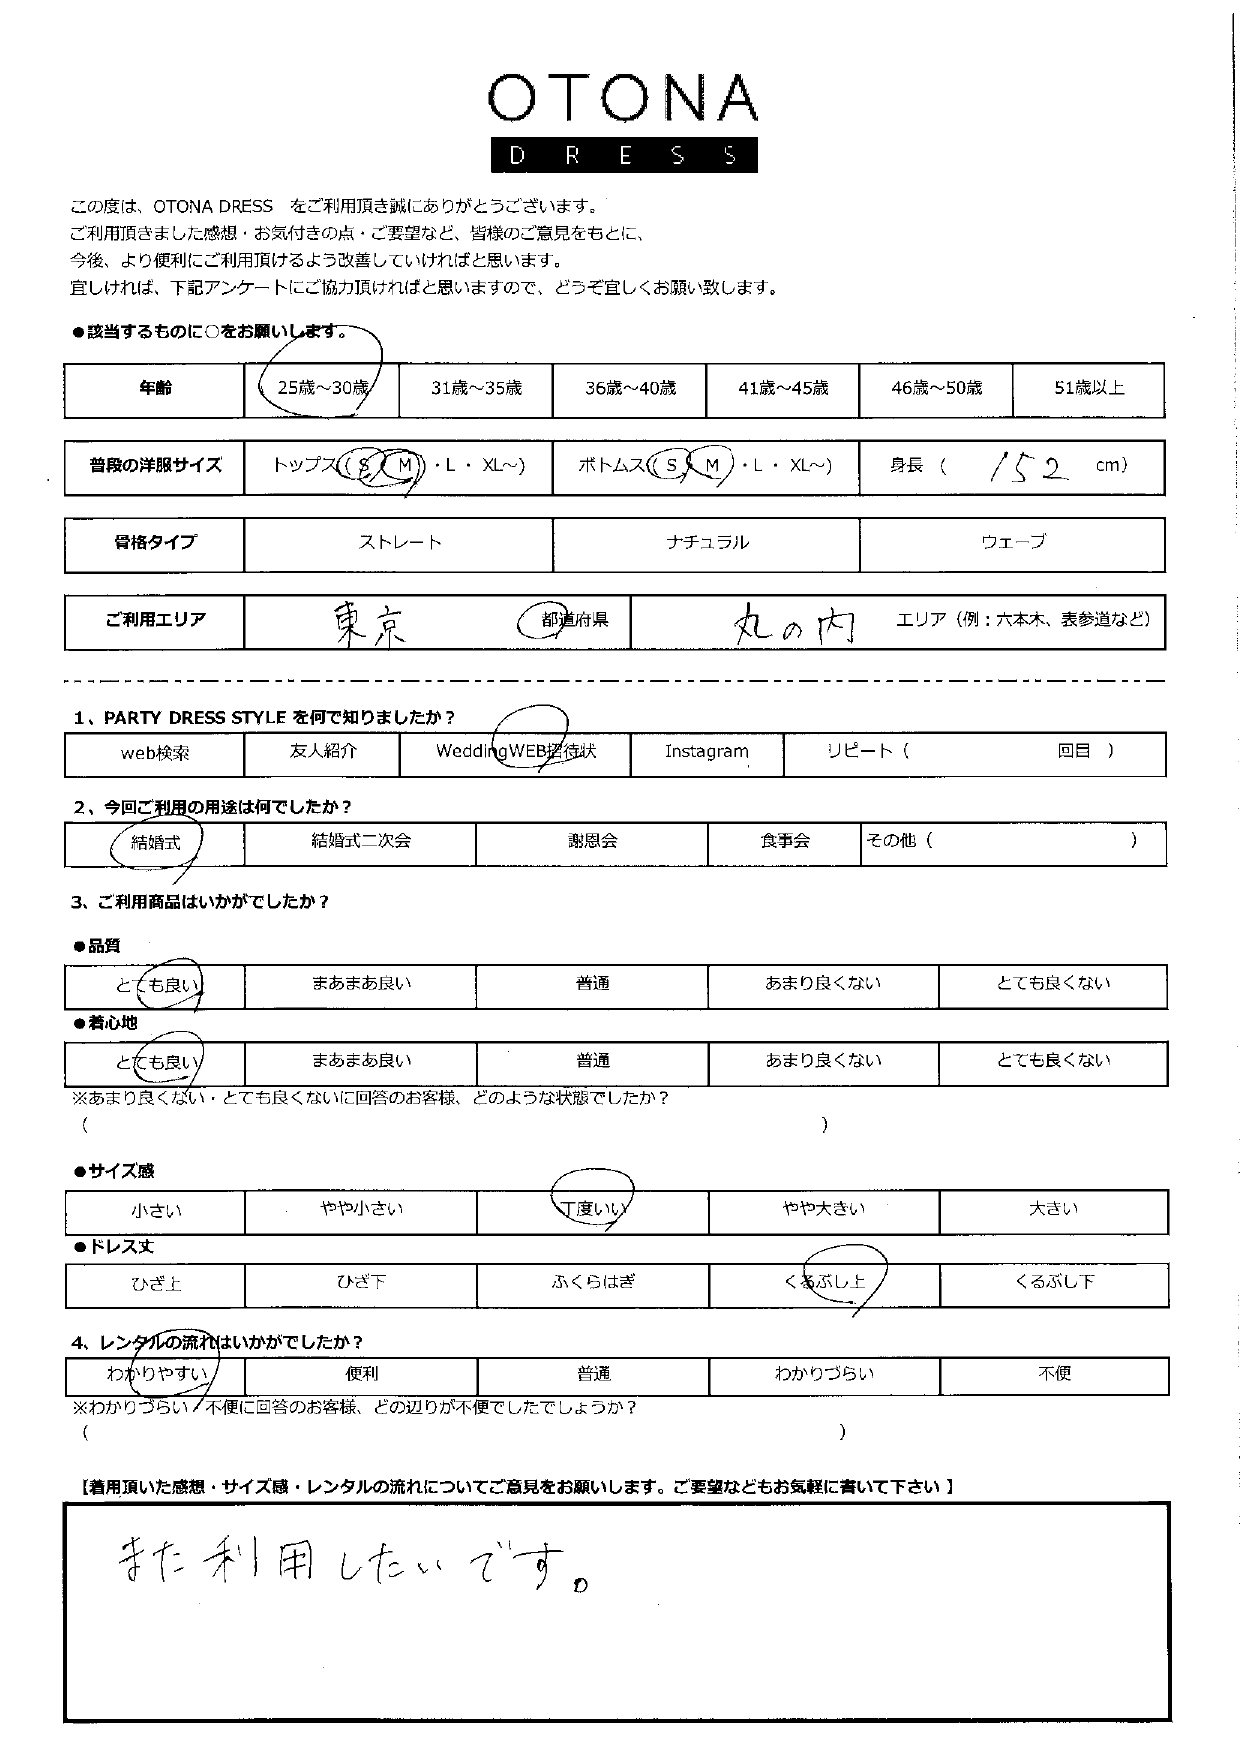 OTONA
DRESS
この度は、OTONA DRESS をご利用頂き誠にありがとうございます。
ご利用頂きました感想・お気付きの点・ご要望など、皆様のご意見をもとに、
今後、より便利にご利用頂けるよう改善していければと思います。
宜しければ、下記アンケートにご協力頂ければと思いますので、どうぞ宜しくお願い致します。
●該当するものに○をお願いします。
年齢 25歳～30歳 31歳～35歳 36歳～40歳 41歳～45歳 46歳～50歳 51歳以上
普段の洋服サイズ トップス(S・M・L・XL～) ボトムス(S・M・L・XL～) 身長（152cm）
骨格タイプ ストレート ナチュラル ウェーブ
ご利用エリア 東京 都道府県 丸の内 エリア（例：六本木、表参道など）
1、PARTY DRESS STYLE を何で知りましたか？
web検索 友人紹介 WeddingWEB招待状 Instagram リピート（ 回目 ）
2、今回ご利用の用途は何でしたか？
結婚式 結婚式二次会 謝恩会 食事会 その他（ ）
3、ご利用商品はいかがでしたか？
●品質
とても良い まあまあ良い 普通 あまり良くない とても良くない
●着心地
とても良い まあまあ良い 普通 あまり良くない とても良くない
※あまり良くない・とても良くないに回答のお客様、どのような状態でしたか？
（ ）
●サイズ感
小さい やや小さい 丁度いい やや大きい 大きい
●ドレス丈
ひざ上 ひざ下 ふくらはぎ くるぶし上 くるぶし下
4、レンタルの流れはいかがでしたか？
わかりやすい 便利 普通 わかりづらい 不便
※わかりづらい/不便に回答のお客様、どの辺りが不便でしたでしょうか？
（ ）
【着用頂いた感想・サイズ感・レンタルの流れについてご意見をお願いします。ご要望などもお気軽に書いて下さい】
また利用したいです。